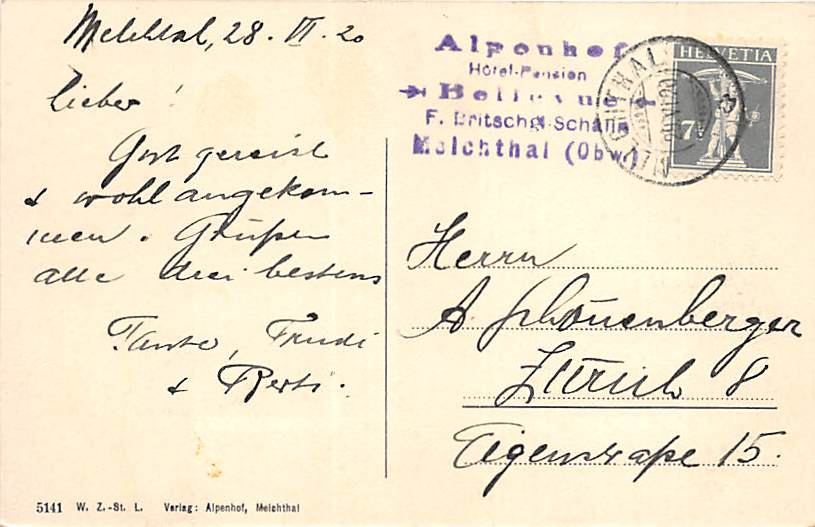 Melchtal, 28. VI. 20
Lieber!
Gut gereist
& wohl angekom-
men. Grüßen
alle drei bestens
Tante, Trudi
& Berti.
Alpenhof
Hôtel-Pension
Bellevue
F. Britschgi-Schälin
Melchthal (Obw.)
HELVETIA
7½
Herrn
A. Schönenberger
Zürich 8
Eigenstraße 15.
5141 W. Z.-St. L. Verlag: Alpenhof, Melchthal